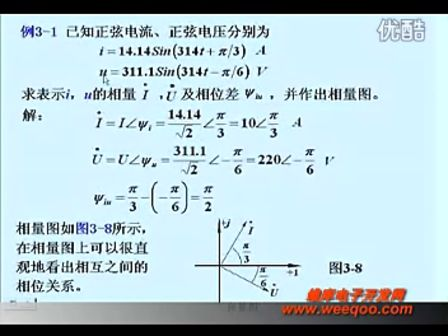 例3-1 已知正弦电流、正弦电压分别为
i=14.14Sin(314t+π/3) A
u=311.1Sin(314t-π/6) V
求表示i, u的相量 İ , U̇ 及相位差 ψiu , 并作出相量图。
解:
İ = I∠ψi = 14.14/√2 ∠π/3 = 10∠π/3 A
U̇ = U∠ψu = 311.1/√2 ∠-π/6 = 220∠-π/6 V
ψiu = π/3 - (-π/6) = π/2
相量图如图3-8所示,
在相量图上可以很直
观地看出相互之间的
相位关系。
+j
İ
π/3
π/6
+1
U̇
图3-8
www.weeqoo.com